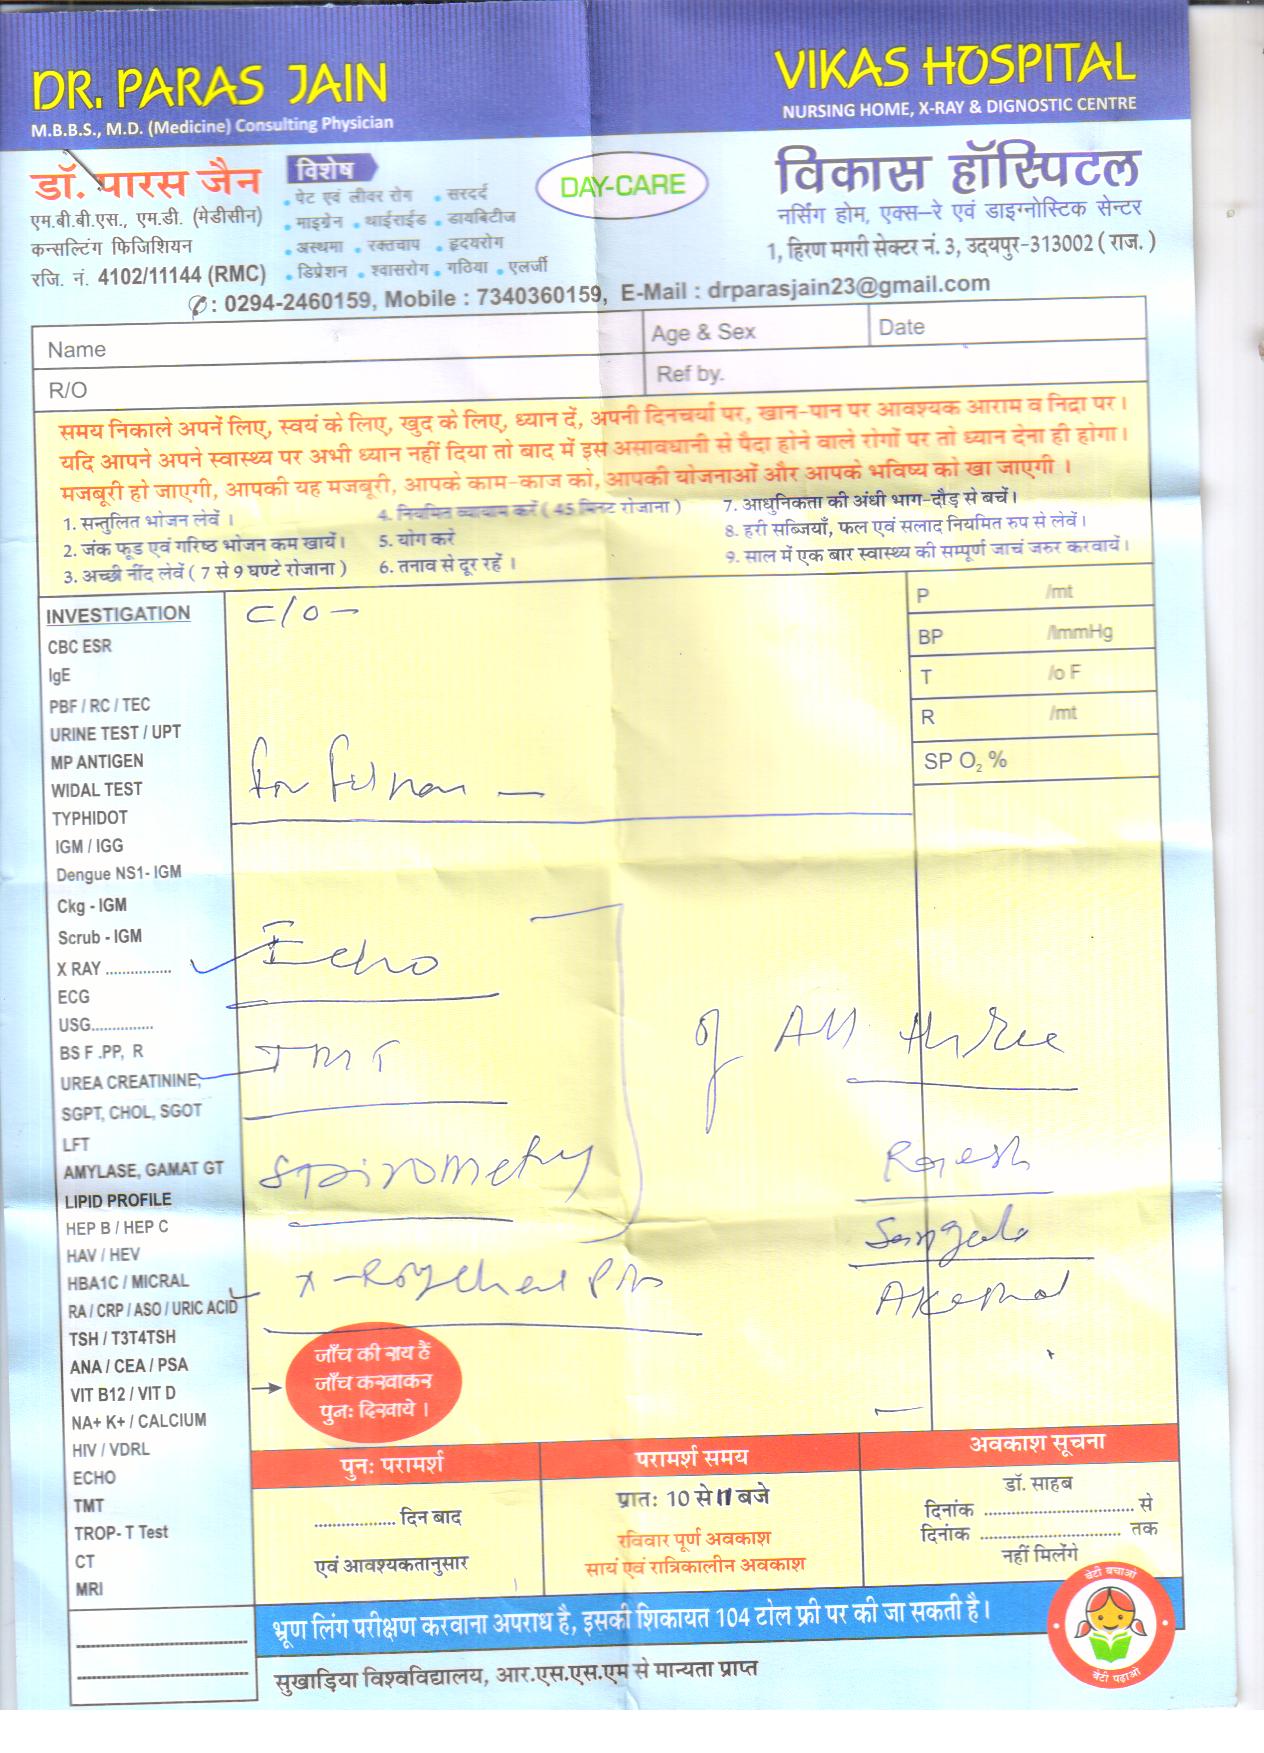 DR. PARAS JAIN
M.B.B.S., M.D. (Medicine) Consulting Physician
VIKAS HOSPITAL
NURSING HOME, X-RAY & DIGNOSTIC CENTRE
डॉ. पारस जैन
एम.बी.बी.एस., एम.डी. (मेडीसीन)
कन्सल्टिंग फिजिशियन
रजि. नं. 4102/11144 (RMC)
विशेष
• पेट एवं लीवर रोग • सरदर्द
• माइग्रेन • थाईराईड • डायबिटीज
• अस्थमा • रक्तचाप • हृदयरोग
• डिप्रेशन • श्वासरोग • गठिया • एलर्जी
DAY-CARE
विकास हॉस्पिटल
नर्सिंग होम, एक्स-रे एवं डाइग्नोस्टिक सेन्टर
1, हिरण मगरी सेक्टर नं. 3, उदयपुर-313002 ( राज. )
✆: 0294-2460159, Mobile : 7340360159, E-Mail : drparasjain23@gmail.com
Name
Age & Sex
Date
R/O
Ref by.
समय निकाले अपनें लिए, स्वयं के लिए, खुद के लिए, ध्यान दें, अपनी दिनचर्या पर, खान-पान पर आवश्यक आराम व निद्रा पर।
यदि आपने अपने स्वास्थ्य पर अभी ध्यान नहीं दिया तो बाद में इस असावधानी से पैदा होने वाले रोगों पर तो ध्यान देना ही होगा।
मजबूरी हो जाएगी, आपकी यह मजबूरी, आपके काम-काज को, आपकी योजनाओं और आपके भविष्य को खा जाएगी ।
1. सन्तुलित भोजन लेवें ।
2. जंक फूड एवं गरिष्ठ भोजन कम खायें।
3. अच्छी नींद लेवें ( 7 से 9 घण्टे रोजाना )
4. नियमित व्यायाम करें ( 45 मिनट रोजाना )
5. योग करे
6. तनाव से दूर रहें ।
7. आधुनिकता की अंधी भाग-दौड़ से बचें।
8. हरी सब्जियाँ, फल एवं सलाद नियमित रुप से लेवें।
9. साल में एक बार स्वास्थ्य की सम्पूर्ण जाचं जरुर करवायें।
INVESTIGATION
CBC ESR
IgE
PBF / RC / TEC
URINE TEST / UPT
MP ANTIGEN
WIDAL TEST
TYPHIDOT
IGM / IGG
Dengue NS1- IGM
Ckg - IGM
Scrub - IGM
X RAY ................
ECG
USG...............
BS F .PP, R
UREA CREATININE,
SGPT, CHOL, SGOT
LFT
AMYLASE, GAMAT GT
LIPID PROFILE
HEP B / HEP C
HAV / HEV
HBA1C / MICRAL
RA / CRP / ASO / URIC ACID
TSH / T3T4TSH
ANA / CEA / PSA
VIT B12 / VIT D
NA+ K+ / CALCIUM
HIV / VDRL
ECHO
TMT
TROP- T Test
CT
MRI
C/O -
P /mt
BP /lmmHg
T /o F
R /mt
SP O₂ %
for
Echo
TMT
Spirometry
X-Ray Chest
of All three
Rajesh
Sangeeta
जाँच की राय हैं
जाँच करवाकर
पुनः दिखाये ।
पुनः परामर्श
................. दिन बाद
एवं आवश्यकतानुसार
परामर्श समय
प्रातः 10 से 11 बजे
रविवार पूर्ण अवकाश
सायं एवं रात्रिकालीन अवकाश
अवकाश सूचना
डॉ. साहब
दिनांक ................................ से
दिनांक .............................. तक
नहीं मिलेंगे
भ्रूण लिंग परीक्षण करवाना अपराध है, इसकी शिकायत 104 टोल फ्री पर की जा सकती है।
बेटी बचाओ
बेटी पढ़ाओ
सुखाड़िया विश्वविद्यालय, आर.एस.एस.एम से मान्यता प्राप्त